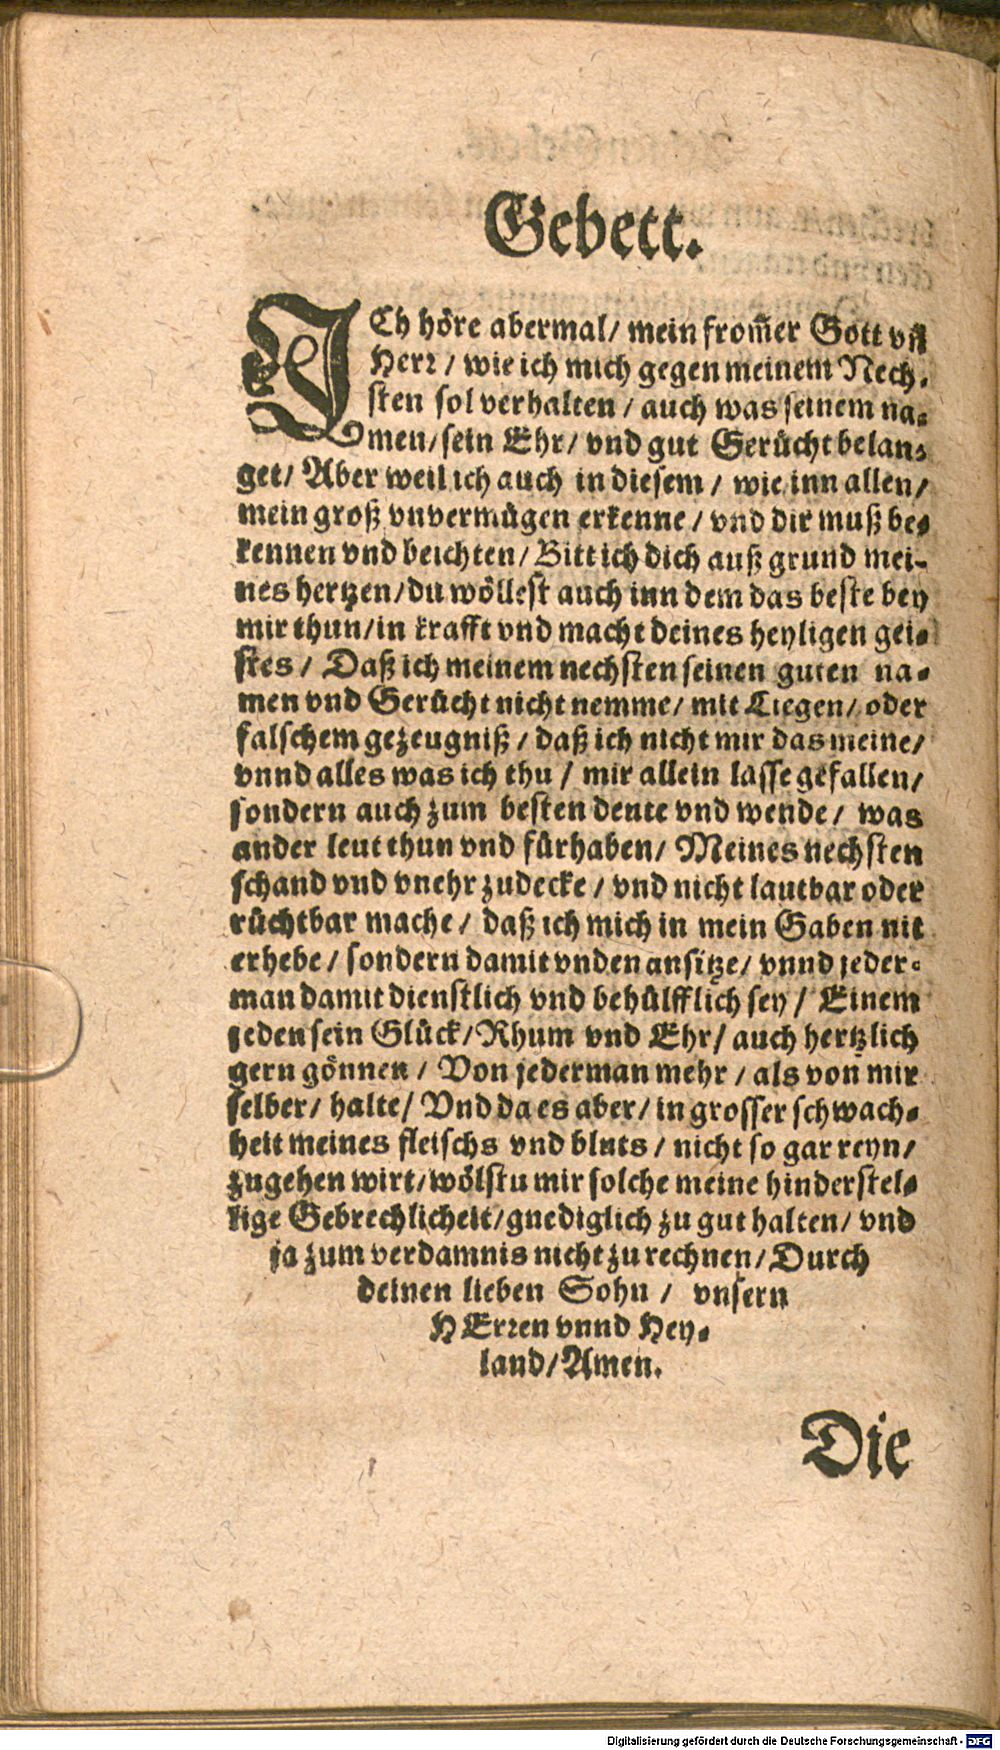 Gebett.
ICh höre abermal/ mein from̄er Gott vn̄
Herr/ wie ich mich gegen meinem Nech-
sten sol verhalten/ auch was seinem na-
men/ sein Ehr/ vnd gut Gerücht belan-
get/ Aber weil ich auch in diesem/ wie inn allen/
mein groß vnvermügen erkenne/ vnd dir muß be-
kennen vnd beichten/ Bitt ich dich auß grund mei-
nes hertzen/ du wöllest auch inn dem das beste bey
mir thun/ in krafft vnd macht deines heyligen gei-
stes/ Daß ich meinem nechsten seinen guten na-
men vnd Gerücht nicht nemme/ mit Liegen/ oder
falschem gezeugniß/ daß ich nicht mir das meine/
vnnd alles was ich thu/ mir allein lasse gefallen/
sondern auch zum besten deute vnd wende/ was
ander leut thun vnd fürhaben/ Meines nechsten
schand vnd vnehr zudecke/ vnd nicht lautbar oder
rüchtbar mache/ daß ich mich in mein Gaben nit
erhebe/ sondern damit vnden ansitze/ vnnd jeder-
man damit dienstlich vnd behülfflich sey/ Einem
jeden sein Glück/ Rhum vnd Ehr/ auch hertzlich
gern gönnen/ Von jederman mehr/ als von mir
selber/ halte/ Vnd da es aber/ in grosser schwach-
heit meines fleischs vnd bluts/ nicht so gar reyn/
zugehen wirt/ wölstu mir solche meine hinderstel-
lige Gebrechlicheit/ gnediglich zu gut halten/ vnd
ja zum verdamnis nicht zu rechnen/ Durch
deinen lieben Sohn/ vnsern
HErren vnnd Hey-
land/ Amen.
Die
Digitalisierung gefördert durch die Deutsche Forschungsgemeinschaft - DFG